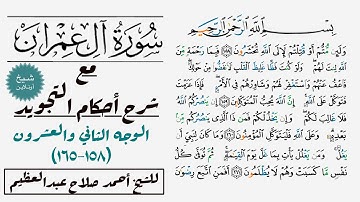 بِسْمِ اللَّهِ الرَّحْمَٰنِ الرَّحِيمِ
وَلَئِن مُّتُّمْ أَوْ قُتِلْتُمْ لَإِلَى اللَّهِ تُحْشَرُونَ ﴿١٥٨﴾ فَبِمَا رَحْمَةٍ مِّنَ
اللَّهِ لِنتَ لَهُمْ وَلَوْ كُنتَ فَظًّا غَلِيظَ الْقَلْبِ لَانفَضُّوا مِنْ حَوْلِكَ
فَاعْفُ عَنْهُمْ وَاسْتَغْفِرْ لَهُمْ وَشَاوِرْهُمْ فِي الْأَمْرِ فَإِذَا عَزَمْتَ
فَتَوَكَّلْ عَلَى اللَّهِ إِنَّ اللَّهَ يُحِبُّ الْمُتَوَكِّلِينَ ﴿١٥٩﴾ إِن يَنصُرْكُمُ اللَّهُ
فَلَا غَالِبَ لَكُمْ وَإِن يَخْذُلْكُمْ فَمَن ذَا الَّذِي يَنصُرُكُم مِّن
بَعْدِهِ وَعَلَى اللَّهِ فَلْيَتَوَكَّلِ الْمُؤْمِنُونَ ﴿١٦٠﴾ وَمَا كَانَ لِنَبِيٍّ أَن
يَغُلَّ وَمَن يَغْلُلْ يَأْتِ بِمَا غَلَّ يَوْمَ الْقِيَامَةِ ثُمَّ تُوَفَّى كُلُّ
نَفْسٍ مَّا كَسَبَتْ وَهُمْ لَا يُظْلَمُونَ
سورة آل عمران
مع
شيخ
أونلاين
شرح أحكام التجويد
الوجه الثاني والعشرون
(١٥٨-١٦٥)
للشيخ أحمد صلاح عبدالعظيم